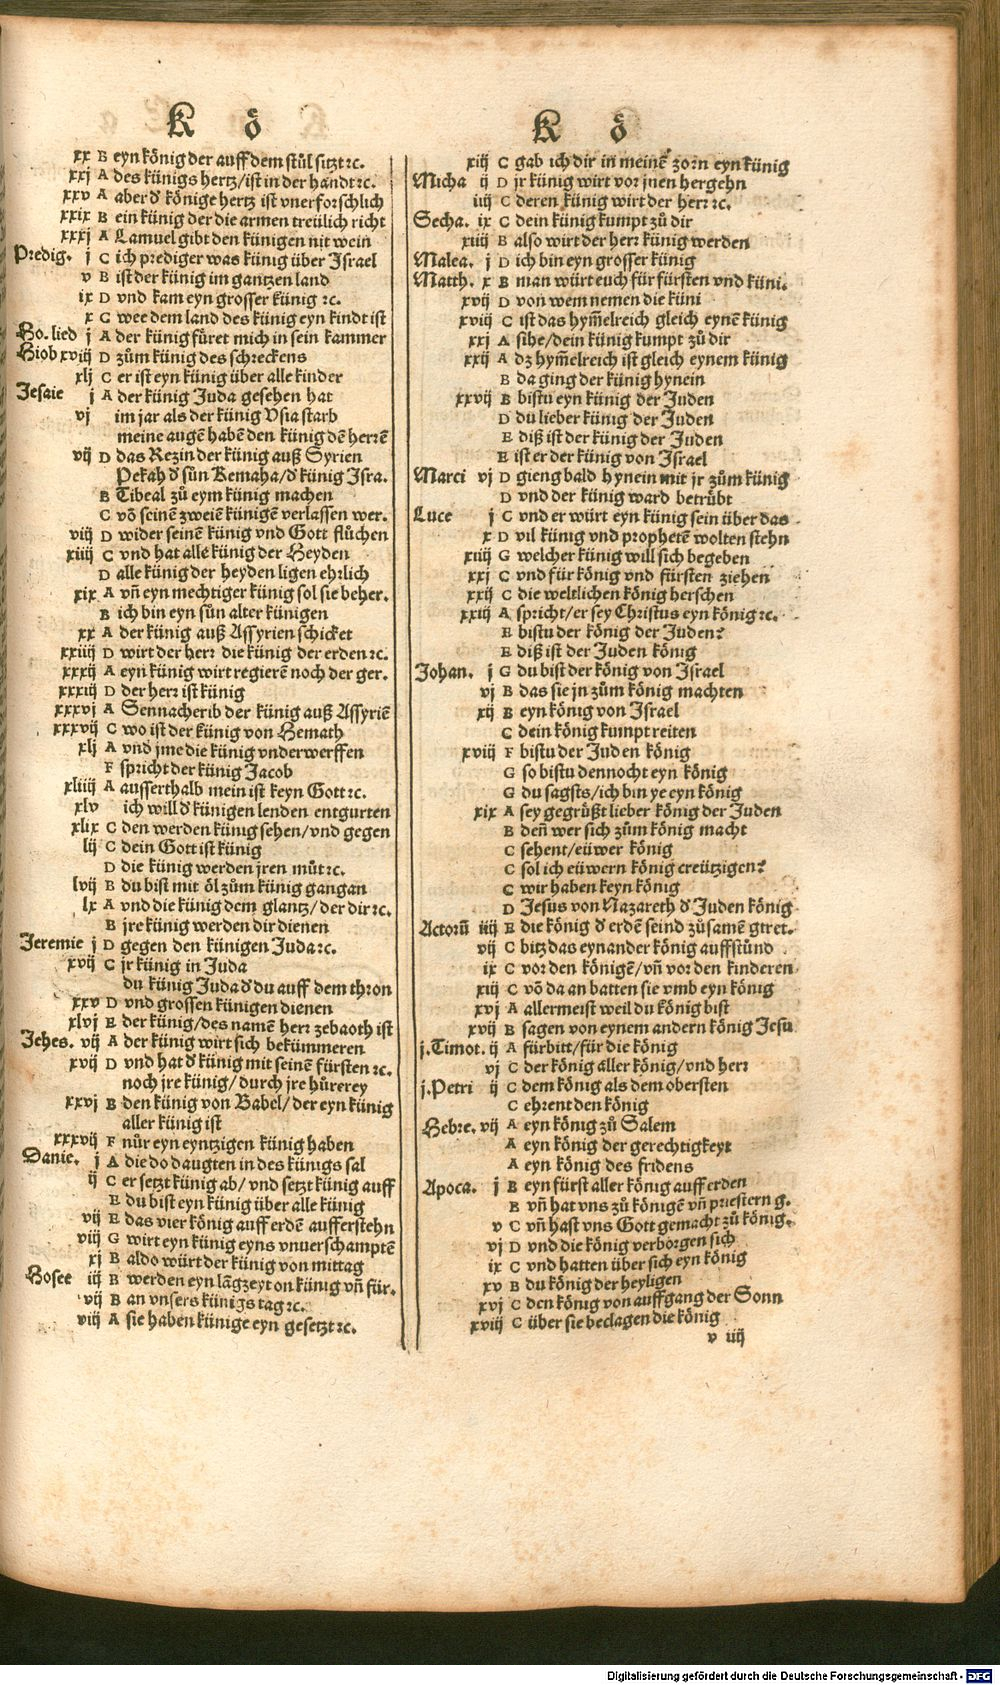 K ö
xx B eyn könig der auff dem stůl sitzt ⁊c.
xxj A des künigs hertz/ist in der handt ⁊c.
xxv A aber dʼ könige hertz ist vnerforschlich
xxix B ein künig der die armen treülich richt
xxxj A Lamuel gibt den künigen nit wein
Predig. j C ich prediger was künig über Israel
v B ist der künig im gantzen land
ix D vnd kam eyn grosser künig ⁊c.
x G wee dem land des künig eyn kindt ist
Ho. lied j A der künig fůret mich in sein kammer
Hiob xviij D zům künig des schreckens
xlj C er ist eyn künig über alle kinder
Jesaie j A der künig Juda gesehen hat
vj im jar als der künig Vsia starb
meine augē habē den künig dē herrē
vij D das Rezin der künig auß Syrien
Pekah dʼ sün Remaha/dʼ künig Isra.
B Tibeal zů eym künig machen
C võ seinē zweiē künigē verlassen wer.
viij D wider seinē künig vnd Gott flůchen
xiiij C vnd hat alle künig der Heyden
D alle künig der heyden ligen ehrlich
xix A vñ eyn mechtiger künig sol sie beher.
B ich bin eyn sün alter künigen
xx A der künig auß Assyrien schicket
xxiiij D wirt der herr die künig der erden ⁊c.
xxxij A eyn künig wirt regierē noch der ger.
xxxiij D der herr ist künig
xxxvj A Sennacherib der künig auß Assyriē
xxxvij C wo ist der künig von Hemath
xlj A vnd jme die künig vnderwerffen
F spricht der künig Jacob
xliiij A ausserthalb mein ist keyn Gott ⁊c.
xlv ich will dʼ künigen lenden entgurten
xlix C den werden künig sehen/vnd gegen
lij C dein Gott ist künig
D die künig werden jren můt ⁊c.
lvij B du bist mit öl zům künig gangan
lx A vnd die künig dem glantz/der dir ⁊c.
B jre künig werden dir dienen
Jeremie j D gegen den künigen Juda ⁊c.
xvij C jr künig in Juda
du künig Juda dʼ du auff dem thron
xxv D vnd grossen künigen dienen
xlvj E der künig/des namē herr zebaoth ist
Jehes. vij A der künig wirt sich bekümmeren
xvij D vnd hat dʼ künig mit seinē fürsten ⁊c.
noch jre künig/durch jre hůrerey
xxvj B den künig von Babel/der eyn künig
aller künig ist
xxxvij F nůr eyn eyntzigen künig haben
Danie. j A die do daugten in des künigs sal
ij C er setzt künig ab/vnd setzt künig auff
E du bist eyn künig über alle künig
vij E das vier könig auff erdē aufferstehn
viij G wirt eyn künig eyns vnuerschamptē
xj B aldo würt der künig von mittag
Hosee iij B werden eyn lāgzeyt on künig vñ für.
vij B an vnsers künigs tag ⁊c.
viij A sie haben künige eyn gesetzt ⁊c.
K ö
xiij C gab ich dir in meinē zorn eyn künig
Micha ij D jr künig wirt vor jnen hergehn
iiij C deren künig wirt der herr ⁊c.
Secha. ix C dein künig kumpt zů dir
xiiij B also wirt der herr künig werden
Malea. j D ich bin eyn grosser künig
Matth. x B man würt euch für fürsten vnd küni.
xvij D von wem nemen die küni
xviij C ist das hym̃elreich gleich eynē künig
xxj A sihe/dein künig kumpt zů dir
xxij A dz hym̃elreich ist gleich eynem künig
B da ging der künig hynein
xxvij B bistu eyn künig der Juden
D du lieber künig der Juden
E diß ist der künig der Juden
E ist er der künig von Israel
Marci vj D gieng bald hynein mit jr zům künig
D vnd der künig ward betrůbt
Luce j C vnd er würt eyn künig sein über das
x D vil künig vnd prophetē wolten stehn
xiiij G welcher künig will sich begeben
xxj C vnd für könig vnd fürsten ziehen
xxij C die weltlichen könig herschen
xxiij A spricht/er sey Christus eyn könig ⁊c.
E bistu der könig der Juden?
E diß ist der Juden könig
Johan. j G du bist der könig von Israel
vj B das sie jn zům könig machten
xij B eyn könig von Israel
C dein könig kumpt reiten
xviij F bistu der Juden könig
G so bistu dennocht eyn könig
G du sagsts/ich bin ye eyn könig
xix A sey gegrůßt lieber könig der Juden
B deñ wer sich zům könig macht
C sehent/eüwer könig
C sol ich eüwern könig creützigen?
C wir haben keyn könig
D Jesus von Nazareth dʼ Juden könig
Actorũ iiij E die könig dʼ erdē seind zůsamē gtret.
vij C bitz das eynander könig auffstůnd
ix C vor den königē/vñ vor den kinderen
xiij C võ da an batten sie vmb eyn könig
xvj A allermeist weil du könig bist
xvij B sagen von eynem andern könig Jesu
j.Timot. ij A fürbitt/für die könig
vj C der könig aller könig/vnd herr
j.Petri ij C dem könig als dem obersten
C ehrent den könig
Hebre. vij A eyn könig zů Salem
A eyn könig der gerechtigkeyt
A eyn könig des fridens
Apoca. j B eyn fürst aller könig auff erden
B vñ hat vns zů königē vñ priestern g.
v C vñ hast vns Gott gemacht zů könig.
vj D vnd die könig verborgen sich
ix C vnd hatten über sich eyn könig
xv B du könig der heyligen
xvj C den könig von auffgang der Sonn
xviij C über sie beclagen die könig
v iiij
Digitalisierung gefördert durch die Deutsche Forschungsgemeinschaft - DFG